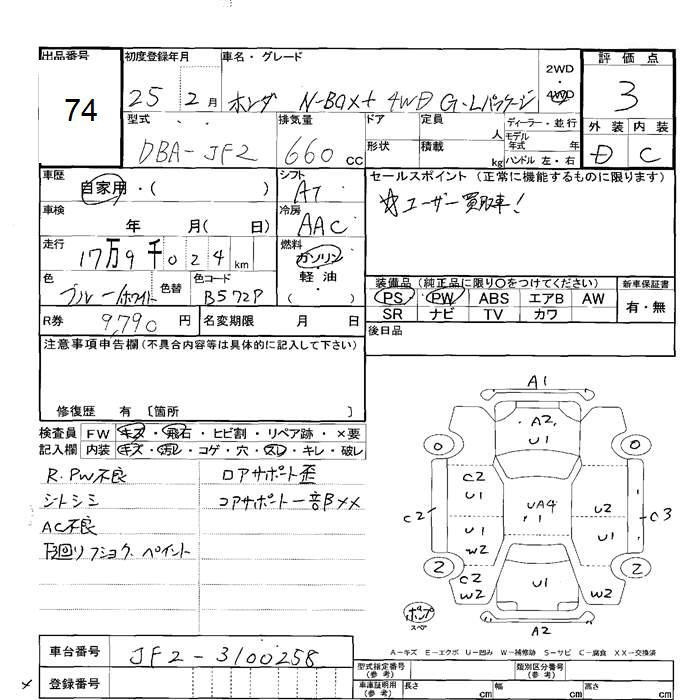 出品番号 初度登録年月 車名・グレード 評価点
74
25年 2月 ホンダ N-BOX+ 4WD G・Lパッケージ 2WD・4WD 3
型式 排気量 ドア 定員 人 ディーラー・並行 外装 内装
DBA-JF2 660 cc 形状 積載 kg モデル年式 年 D C
ハンドル 左・右
車歴 シフト セールスポイント (正常に機能するものに限ります)
自家用・( ) AT ☆ユーザー買取車!
車検 年 月( 日) 冷房 AAC
走行 17万9千024km 燃料 ガソリン・軽油・( )
色 ブルー/ホワイト 色替 色コード B572P
装備品 (純正品に限り○をつけてください) 新車保証書
PS PW ABS エアB AW 有・無
SR ナビ TV カワ
R券 9,790円 名変期限 月 日
後日品
注意事項申告欄(不具合内容等は具体的に記入して下さい)
修復歴 有 〔箇所 〕
検査員 FW キズ・飛石・ヒビ割・リペア跡・×要
記入欄 内装 キズ・汚レ・コゲ・穴・スレ・キレ・破レ
R.PW不良 ロアサポート歪
シトシミ コアサポート一部βXX
AC不良
下回リフショク、ペイント
A1
A2
U1
0 0
C2
U1
UA4
U2
C2 C3
U1
W2
2 2
C2
W2
U1
W2
ポンプ
スペア
A2
A-キズ E-エクボ U-凹み W-補修跡 S-サビ C-腐食 XX-交換済
車台番号 JF2-3100258
登録番号
型式指定番号(参考) 類別区分番号(参考)
車庫証明用(参考) 長さ cm 幅 cm 高さ cm